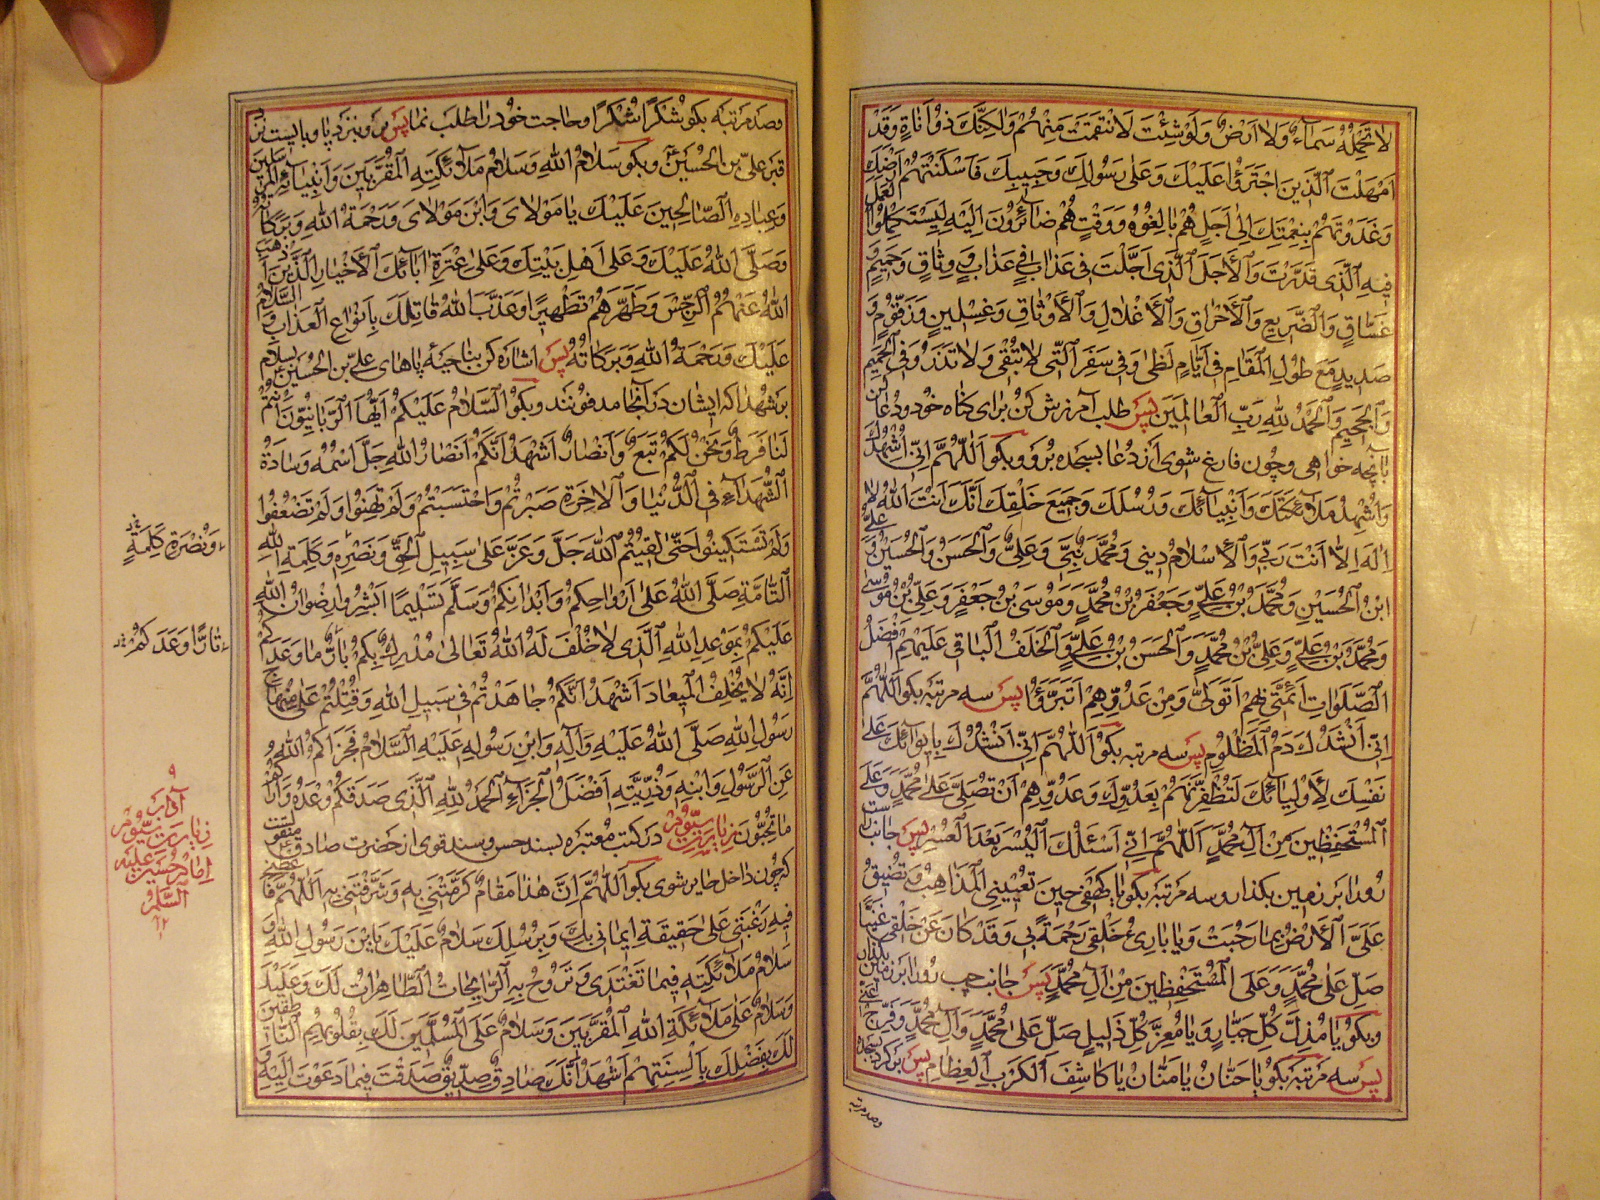 لا تحمله سماء ولا ارض ولو شئت لانتقمت منهم ولكنك ذو اناة وقد
امهلت الذين اجترؤا عليك وعلى رسولك وحبيبك فاسكنتهم ارضك
وغذوتهم بنعمتك الى اجل هم بالغوه ووقت هم صائرون اليه ليستكملوا العمل
فيه الذى قدرت والاجل الذى اجلت فى عذاب ووثاق وحميم و
غساق والضريع والاحراق والاغلال والاوثاق وغسلين وزقوم و
صديد مع طول المقام فى ايام لظى وفى سقر التى لا تبقى ولا تذر وفى الحميم
والجحيم والحمد لله رب العالمين پس طلب آمرزش كن براى گناه خود ودعا كن
باآنچه خواهى وچون فارغ شوى از دعا بسجده برو وبگو اللهم انى اشهدك
واشهد ملائكتك وانبيائك ورسلك وجميع خلقك انك انت الله لا
اله الا انت ربى والاسلام دينى ومحمد نبيى وعلى والحسن والحسين وعلى
ابن الحسين ومحمد بن على وجعفر بن محمد وموسى بن جعفر وعلى بن موسى
ومحمد بن على وعلى بن محمد والحسن بن على والخلف الباقى عليهم افضل
الصلوات ائمتى بهم اتولى ومن عدوهم اتبرؤ پس سه مرتبه بگو اللهم
انى انشدك دم المظلوم پس سه مرتبه بگو اللهم انى انشدك بايوائك على
نفسك لاوليائك لتظفرنهم بعدوك وعدوهم ان تصلى على محمد وعلى
المستحفظين من ال محمد اللهم انى اسئلك اليسر بعد العسر پس جانب راست
رو را بر زمين بگذار وسه مرتبه بگو يا كهفى حين تعيينى المذاهب وتضيق
على الارض بما رحبت ويا بارئ خلقى رحمة بى وقد كان عن خلقى غنيا
صل على محمد وعلى المستحفظين من ال محمد پس جانب چپ رو را بر زمين بگذار
وبگو يا مذل كل جبار ويا معز كل ذليل صل على محمد وال محمد وفرج عنى
پس سه مرتبه بگو يا حنان يا منان يا كاشف الكرب العظام پس برگرد بسجده
وصد مرتبه
وصد مرتبه بگو شكرا شكرا وحاجت خود را طلب نما پس برو بنزد پا وبايست نزد
قبر على بن الحسين وبگو سلام الله وسلام ملائكته المقربين وانبيائه المرسلين
وعباده الصالحين عليك يا مولاى وابن مولاى ورحمة الله وبركاته
وصلى الله عليك وعلى اهل بيتك وعلى عترة ابائك الاخيار الذين اذهب
الله عنهم الرجس وطهرهم تطهيرا وعذب الله قاتلك بانواع العذاب والسلام
عليك ورحمة الله وبركاته پس اشاره كن بناحيه پاهاى على بن الحسين بسلام
بر شهدا كه ايشان در آنجا مدفونند وبگو السلام عليكم ايها الربانيون انتم
لنا فرط ونحن لكم تبع وانصار اشهد انكم انصار الله جل اسمه وسادة
الشهداء فى الدنيا والاخرة صبرتم واحتسبتم ولم تهنوا ولم تضعفوا
ولم تستكينوا حتى لقيتم الله جل وعز على سبيل الحق ونصره وكلمة الله
التامة صلى الله على ارواحكم وابدانكم وسلم تسليما ابشروا رضوان الله
عليكم بموعد الله الذى لا خلف له الله تعالى مدرك بكم بار ما وعدكم
انه لا يخلف الميعاد اشهد انكم جاهدتم فى سبيل الله وقتلتم على منهاج
رسول الله صلى الله عليه وآله وابن رسوله عليه السلام فجزاكم الله
عن الرسول وابنه وذريته افضل الجزاء الحمد لله الذى صدقكم وعده واراكم
ما تحبون زيارت سيوم در كتب معتبره بسند حسن وبسند قوى از حضرت صادق منقولست
كه چون داخل حاير شوى بگو اللهم ان هذا مقام كرمتنى به وشرفتنى به اللهم فاعطنى
فيه رغبتى على حقيقة ايمانى بك وبرسلك سلام عليك يابن رسول الله و
سلام ملائكته فيما تغتدى وتروح به الرايحات الطاهرات لك وعليك
وسلام على ملائكة الله المقربين وسلام على المسلمين لك بقلوبهم الناطقين
لك بفضلك بالسنتهم اشهد انك صادق صديق صدقت فيما دعوت اليه و
ونصرة كلمة
ثارا وعدكم
آداب
زيارت سيوم
امام حسين عليه
السلم